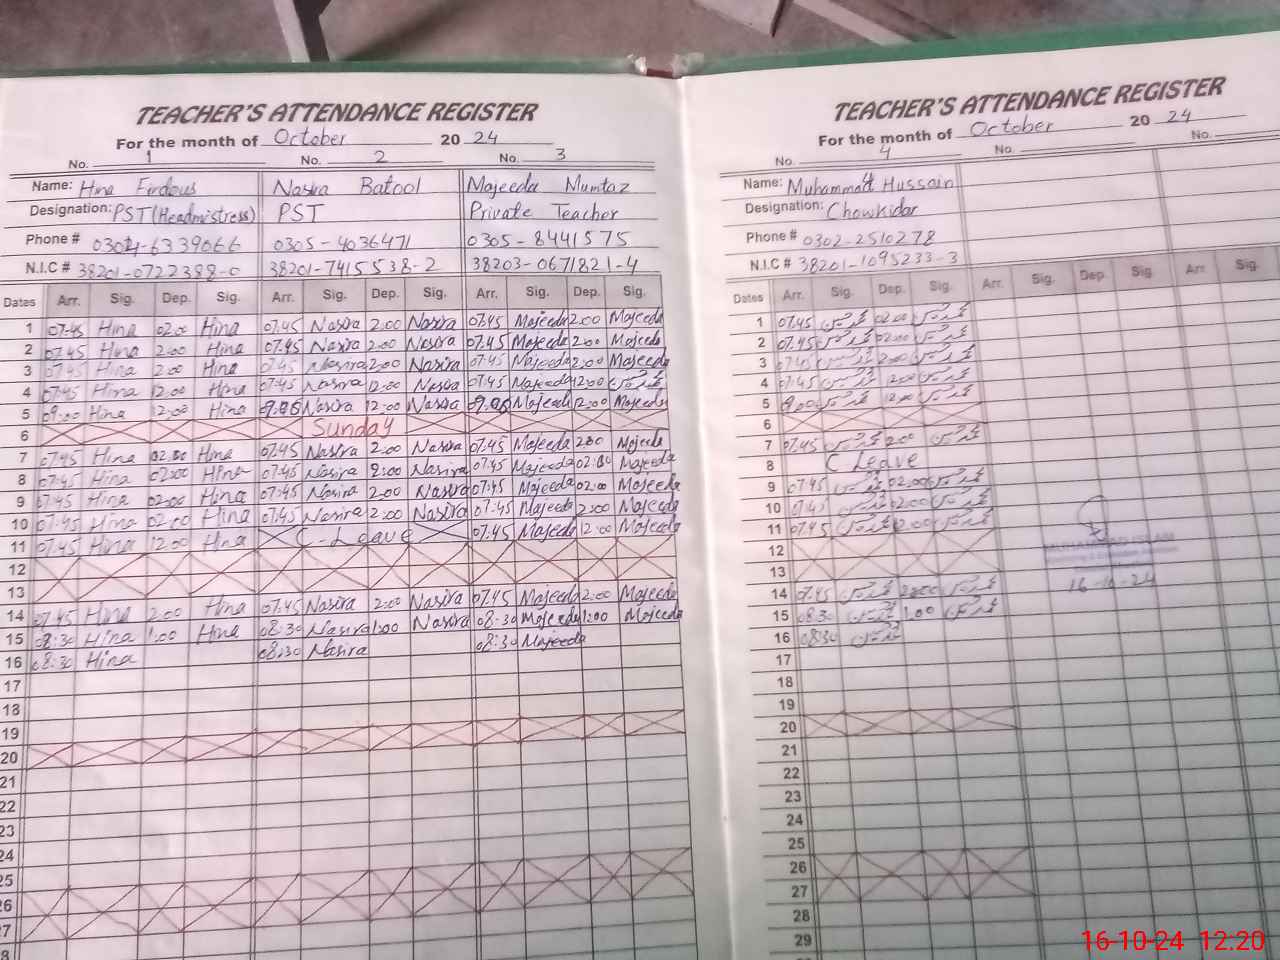 TEACHER'S ATTENDANCE REGISTER
For the month of October 20 24
No. 1 No. 2 No. 3
Name: Hina Firdous Nasira Batool Majeeda Mumtaz
Designation: PST (Headmistress) PST Private Teacher
Phone # 0304-6339066 0305-4036471 0305-8441575
N.I.C # 38201-0722388-0 38201-7415538-2 38203-0671821-4
Dates Arr. Sig. Dep. Sig. Arr. Sig. Dep. Sig. Arr. Sig. Dep. Sig.
1 07:45 Hina 02:00 Hina 07:45 Nasira 2:00 Nasira 07:45 Majeeda 2:00 Majeeda
2 07:45 Hina 2:00 Hina 07:45 Nasira 2:00 Nasira 07:45 Majeeda 2:00 Majeeda
3 07:45 Hina 2:00 Hina 07:45 Nasira 2:00 Nasira 07:45 Majeeda 2:00 Majeeda
4 07:45 Hina 12:00 Hina 07:45 Nasira 12:00 Nasira 07:45 Majeeda 12:00
5 09:00 Hina 12:00 Hina 9:06 Nasira 12:00 Nasira 09:06 Majeeda 12:00 Majeeda
6 Sunday
7 07:45 Hina 02:00 Hina 07:45 Nasira 2:00 Nasira 07:45 Majeeda 2:00 Majeeda
8 07:45 Hina 02:00 Hina 07:45 Nasira 2:00 Nasira 07:45 Majeeda 02:00 Majeeda
9 07:45 Hina 02:00 Hina 07:45 Nasira 2:00 Nasira 07:45 Majeeda 02:00 Majeeda
10 07:45 Hina 02:00 Hina 07:45 Nasira 2:00 Nasira 07:45 Majeeda 2:00 Majeeda
11 07:45 Hina 12:00 Hina C-Leave 07:45 Majeeda 12:00 Majeeda
12
13
14 07:45 Hina 2:00 Hina 07:45 Nasira 2:00 Nasira 07:45 Majeeda 2:00 Majeeda
15 08:30 Hina 1:00 Hina 08:30 Nasira 1:00 Nasira 08:30 Majeeda 1:00 Majeeda
16 08:30 Hina 08:30 Nasira 08:30 Majeeda
17
18
19
20
21
22
23
24
25
26
27
TEACHER'S ATTENDANCE REGISTER
For the month of October 20 24
No. 4 No. No.
Name: Muhammad Hussain
Designation: Chowkidar
Phone # 0302-2510278
N.I.C # 38201-1095233-3
Dates Arr. Sig. Dep. Sig. Arr. Sig. Dep. Sig. Arr. Sig.
1 07:45 02:00
2 07:45 02:00
3 07:45 2:00
4 07:45 12:00
5 9:00 12:00
6
7 07:45 2:00
8 C Leave
9 07:45 02:00
10 07:45 2:00
11 07:45 12:00
12
13
16-10-24
14 07:45 2:00
15 08:30 1:00
16 08:30
17
18
19
20
21
22
23
24
25
26
27
28
29
16-10-24 12:20